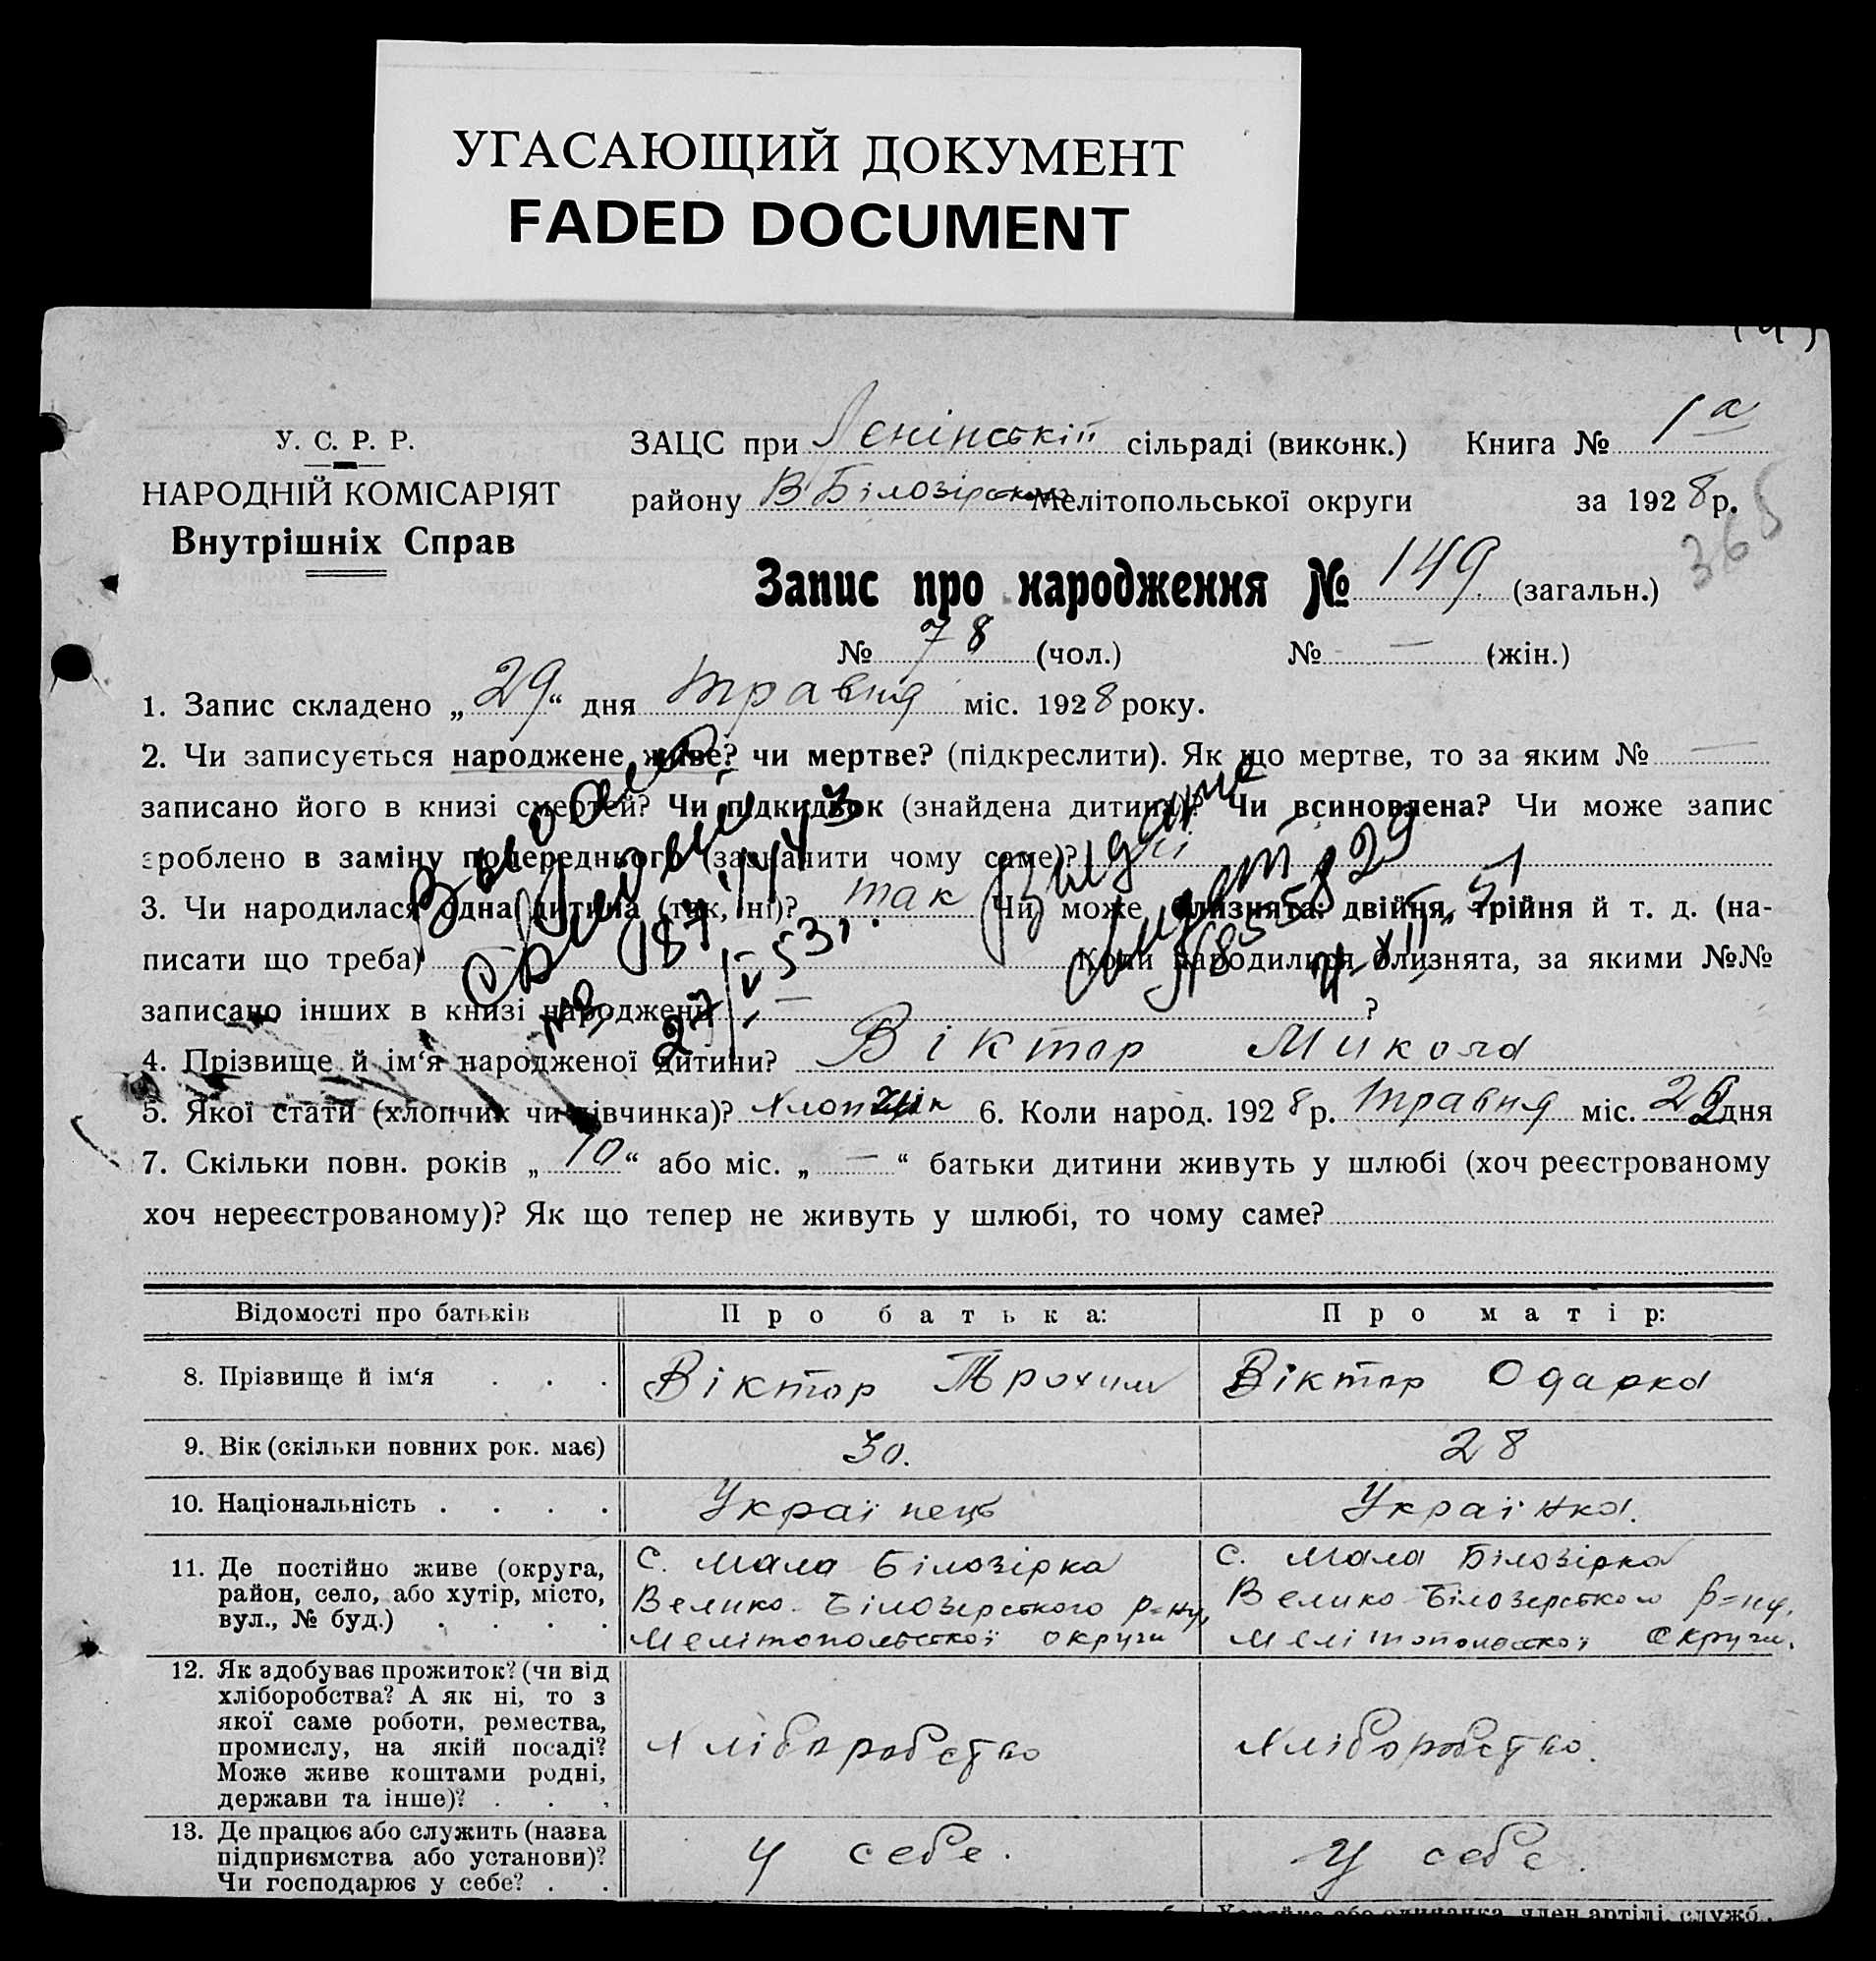 УГАСАЮЩИЙ ДОКУМЕНТ
FADED DOCUMENT
У. С. Р. Р.
НАРОДНІЙ КОМІСАРІЯТ
Внутрішніх Справ
ЗАЦС при Лєнінській сільраді (виконк.) Книга № 1а
району В Білозірського Мелітопольської округи за 1928 р.
365
Запис про народження № 149 (загальн.)
№ 78 (чол.) № — (жін.)
1. Запис складено „29“ дня травня міс. 1928 року.
2. Чи записується народжене живе? чи мертве? (підкреслити). Як що мертве, то за яким № —
записано його в книзі смертей? Чи підкидьок (знайдена дитина)? Чи всиновлена? Чи може запис
зроблено в заміну попереднього (зазначити чому саме)? ні
3. Чи народилася одна дитина (так, ні)? так Чи може близнята: двійня, трійня й т. д. (на-
писати що треба) Коли народилися близнята, за якими №№
записано інших в книзі народжень — ?
4. Прізвище й ім‘я народженої дитини? Віктор Микола
5. Якої статі (хлопчик чи дівчинка)? хлопчик 6. Коли народ. 1928 р. травня міс. 29 дня
7. Скільки повн. років „10“ або міс. „—“ батьки дитини живуть у шлюбі (хоч реєстрованому
хоч нереєстрованому)? Як що тепер не живуть у шлюбі, то чому саме?
Відомості про батьків Про батька: Про матір:
8. Прізвище й ім‘я . . . Віктор Трохим Віктор Одарка
9. Вік (скільки повних рок. має) 30. 28
10. Національність . . . . Українець Українка.
11. Де постійно живе (округа,
район, село, або хутір, місто,
вул., № буд.) . . . .
с. Мала Білозірка
Велико-Білозерського р=ну,
Мелітопольської округи
с. Мала Білозірка
Велико-Білозерського р=ну.
Мелітопольської округи.
12. Як здобуває прожиток? (чи від
хліборобства? А як ні, то з
якої саме роботи, ремества,
промислу, на якій посаді?
Може живе коштами родні,
держави та інше)? . . .
хліборобство
хліборобство.
13. Де працює або служить (назва
підприємства або установи)?
Чи господарює у себе? . .
у себе.
у себе.
Хазяїн або одинанка, член артілі, служб.,